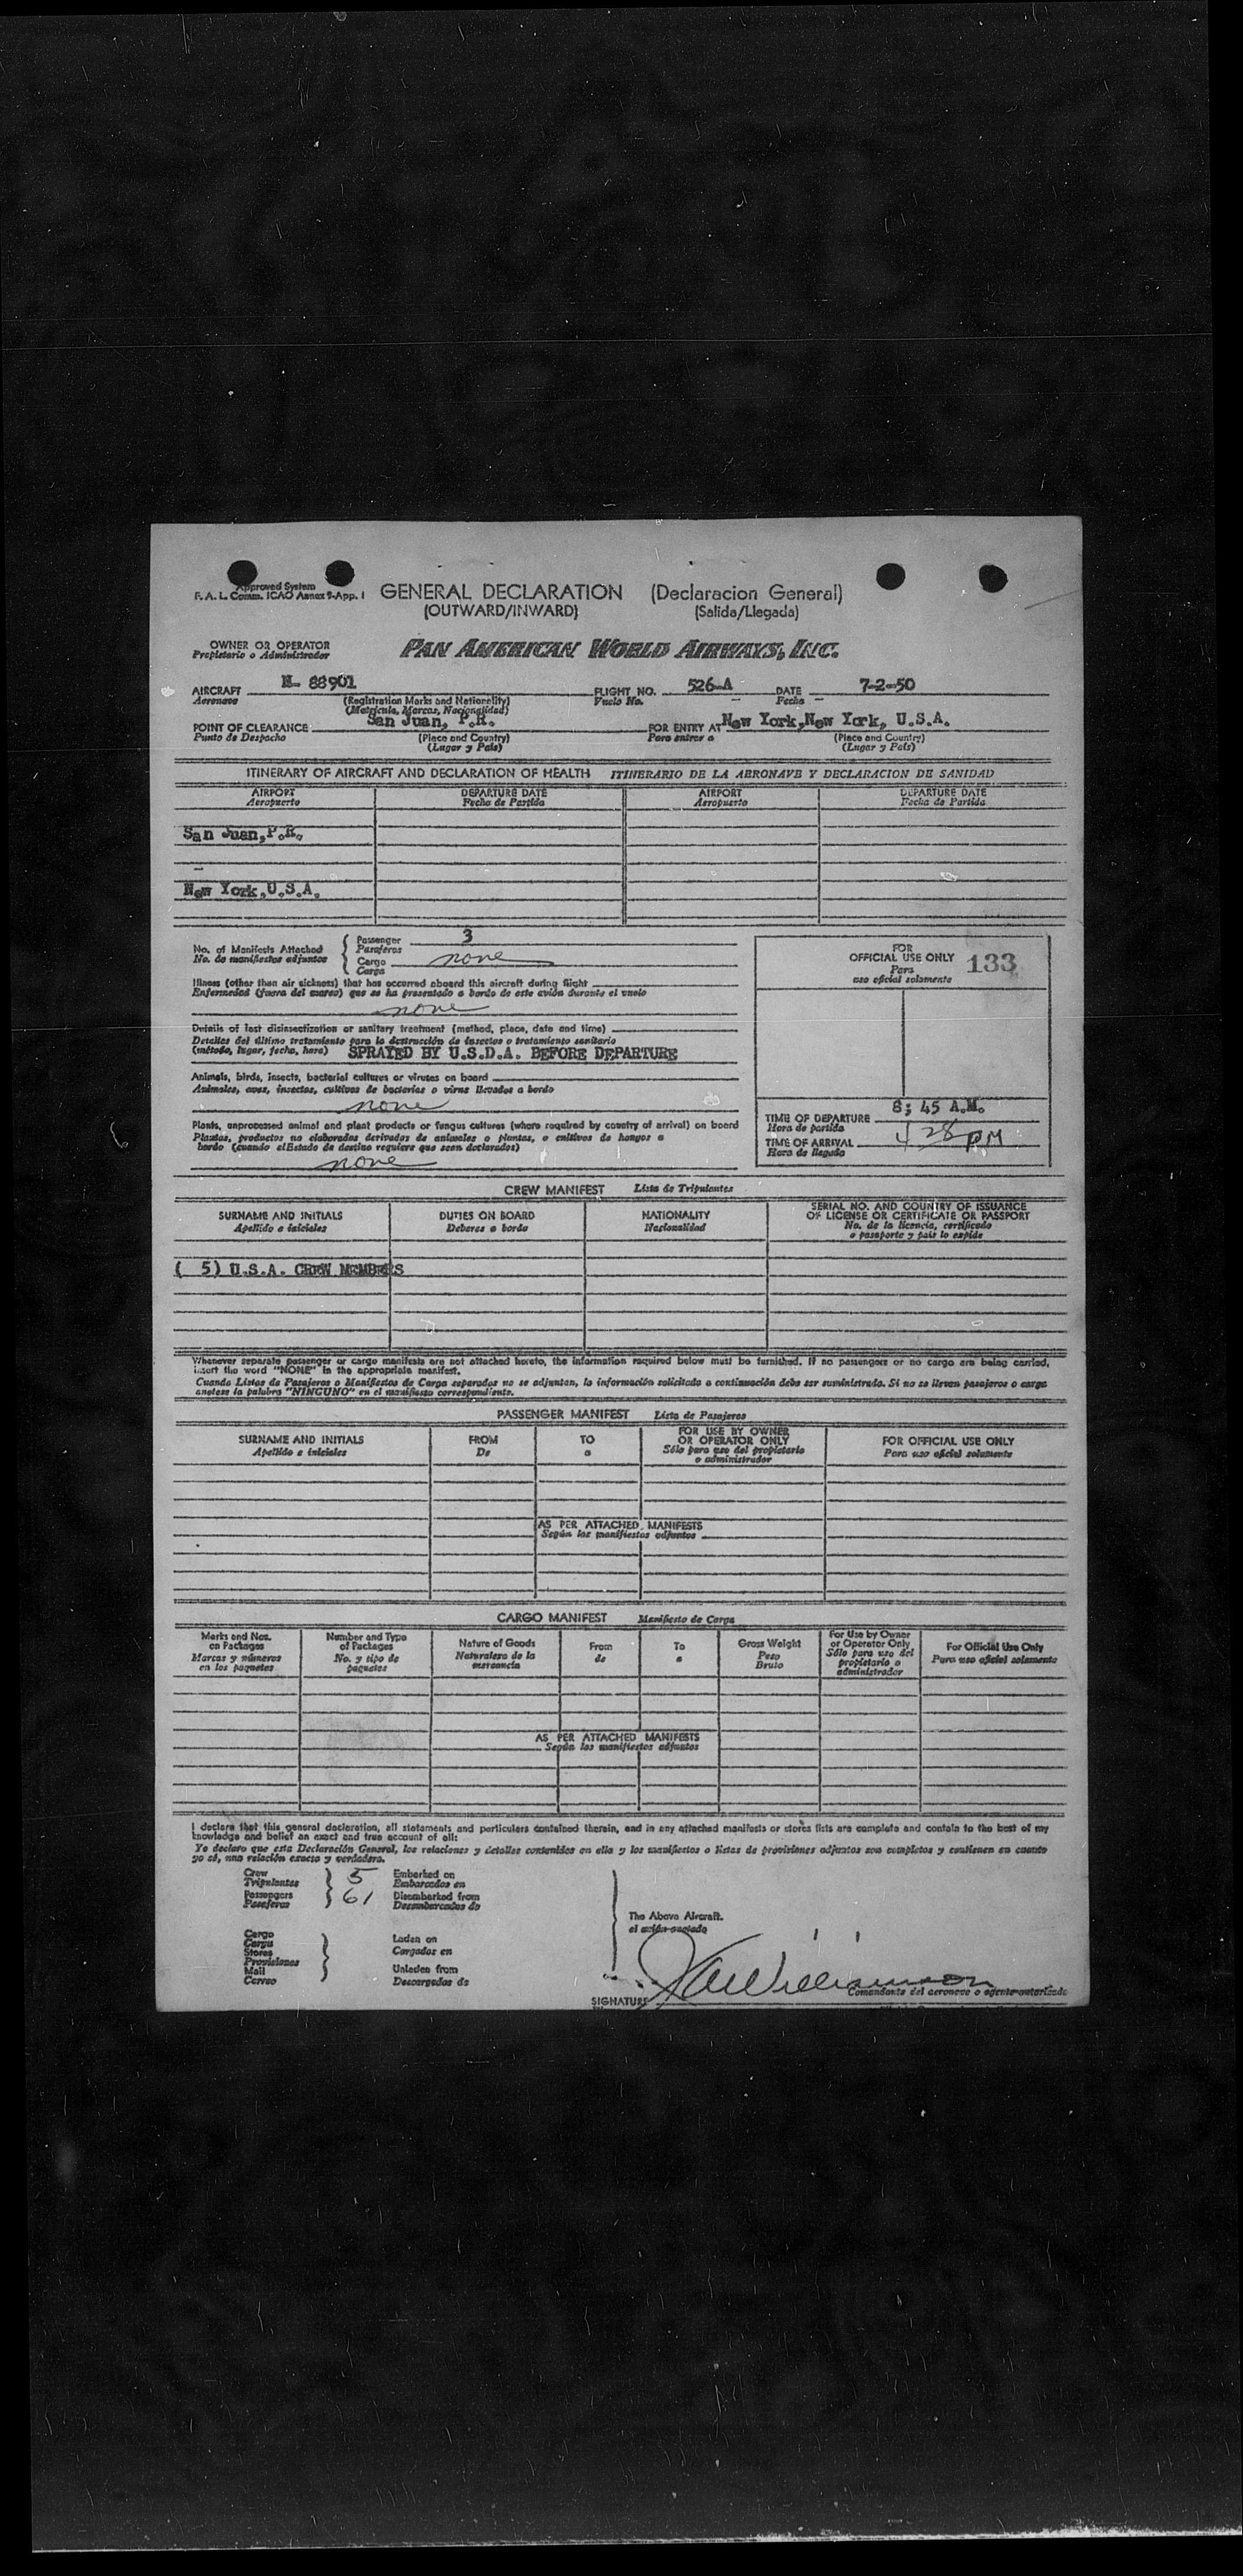 Approved System
F. A. L. Comm. ICAO Annex 9-App. 1
GENERAL DECLARATION (Declaracion General)
(OUTWARD/INWARD) (Salida/Llegada)
OWNER OR OPERATOR
Propietario o Administrador
PAN AMERICAN WORLD AIRWAYS, INC.
AIRCRAFT N- 88901 FLIGHT NO. 526-A DATE 7-2-50
Aeronave (Registration Marks and Nationality) Vuelo No. Fecha
(Matrícula, Marcas, Nacionalidad)
POINT OF CLEARANCE San Juan, P.R. FOR ENTRY AT New York, New York, U.S.A.
Punto de Despacho (Place and Country) Para entrar a (Place and Country)
(Lugar y País) (Lugar y País)
ITINERARY OF AIRCRAFT AND DECLARATION OF HEALTH ITINERARIO DE LA AERONAVE Y DECLARACION DE SANIDAD
AIRPORT DEPARTURE DATE AIRPORT DEPARTURE DATE
Aeropuerto Fecha de Partida Aeropuerto Fecha de Partida
San Juan, P.R.
-
New York, U.S.A.
No. of Manifests Attached
No. de manifiestos adjuntos
Passenger 3
Pasajeros
Cargo none
Carga
Illness (other than air sickness) that has occurred aboard this aircraft during flight
Enfermedad (fuera del mareo) que se ha presentado a bordo de este avión durante el vuelo
none
Details of last disinsectization or sanitary treatment (method, place, date and time)
Detalles del último tratamiento para la destrucción de insectos o tratamiento sanitario
(método, lugar, fecha, hora) SPRAYED BY U.S.D.A. BEFORE DEPARTURE
Animals, birds, insects, bacterial cultures or viruses on board
Animales, aves, insectos, cultivos de bacterias o virus llevados a bordo
none
Plants, unprocessed animal and plant products or fungus cultures (where required by country of arrival) on board
Plantas, productos no elaborados derivados de animales o plantas, o cultivos de hongos a
bordo (cuando el Estado de destino requiere que sean declarados)
none
FOR
OFFICIAL USE ONLY 133
Para
uso oficial solamente
TIME OF DEPARTURE 8; 45 A.M.
Hora de partida
TIME OF ARRIVAL 4 28 PM
Hora de llegada
CREW MANIFEST Lista de Tripulantes
SURNAME AND INITIALS DUTIES ON BOARD NATIONALITY SERIAL NO. AND COUNTRY OF ISSUANCE
OF LICENSE OR CERTIFICATE OR PASSPORT
Apellido e iniciales Deberes a bordo Nacionalidad No. de la licencia, certificado
o pasaporte y país lo expide
( 5) U.S.A. CREW MEMBERS
Whenever separate passenger or cargo manifests are not attached hereto, the information required below must be furnished. If no passengers or no cargo are being carried,
insert the word "NONE" in the appropriate manifest.
Cuando Listas de Pasajeros o Manifiestos de Carga separados no se adjuntan, la información solicitada a continuación debe ser suministrada. Si no se llevan pasajeros o carga
anótese la palabra "NINGUNO" en el manifiesto correspondiente.
PASSENGER MANIFEST Lista de Pasajeros
SURNAME AND INITIALS FROM TO FOR USE BY OWNER
OR OPERATOR ONLY FOR OFFICIAL USE ONLY
Apellido e iniciales De a Sólo para uso del propietario
o administrador Para uso oficial solamente
AS PER ATTACHED MANIFESTS
Según los manifiestos adjuntos
CARGO MANIFEST Manifiesto de Carga
Marks and Nos.
on Packages
Marcas y números
en los paquetes
Number and Type
of Packages
No. y tipo de
paquetes
Nature of Goods
Naturaleza de la
mercancía
From
de
To
a
Gross Weight
Peso
Bruto
For Use by Owner
or Operator Only
Sólo para uso del
propietario o
administrador
For Official Use Only
Para uso oficial solamente
AS PER ATTACHED MANIFESTS
Según los manifiestos adjuntos
I declare that this general declaration, all statements and particulars contained therein, and in any attached manifests or stores lists are complete and contain to the best of my
knowledge and belief an exact and true account of all:
Yo declaro que esta Declaración General, las relaciones y detalles contenidos en ella y los manifiestos o listas de provisiones adjuntos son completos y contienen en cuanto
yo sé, una relación exacta y verdadera.
Crew 5 Embarked on
Tripulantes Embarcados en
Passengers 61 Disembarked from
Pasajeros Desembarcados de
The Above Aircraft.
el avión anotado
Cargo
Carga
Stores
Provisiones
Mail
Correo
Laden on
Cargados en
Unladen from
Descargados de
SIGNATURE Williamson
Comandante del aeronave o agente autorizado